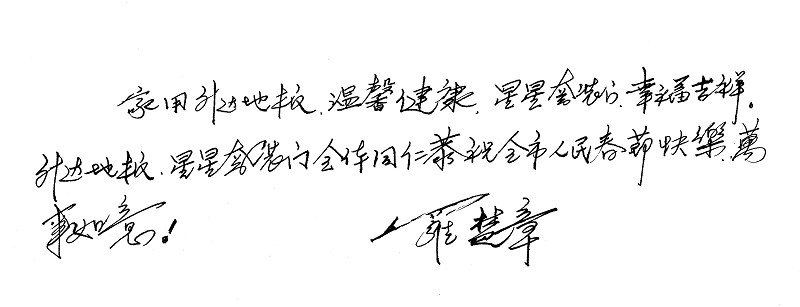 家用升达地板、温馨健康，星星套装门、幸福吉祥。
升达地板、星星套装门全体同仁恭祝全市人民春节快樂，萬
事如意！ 罗慧章